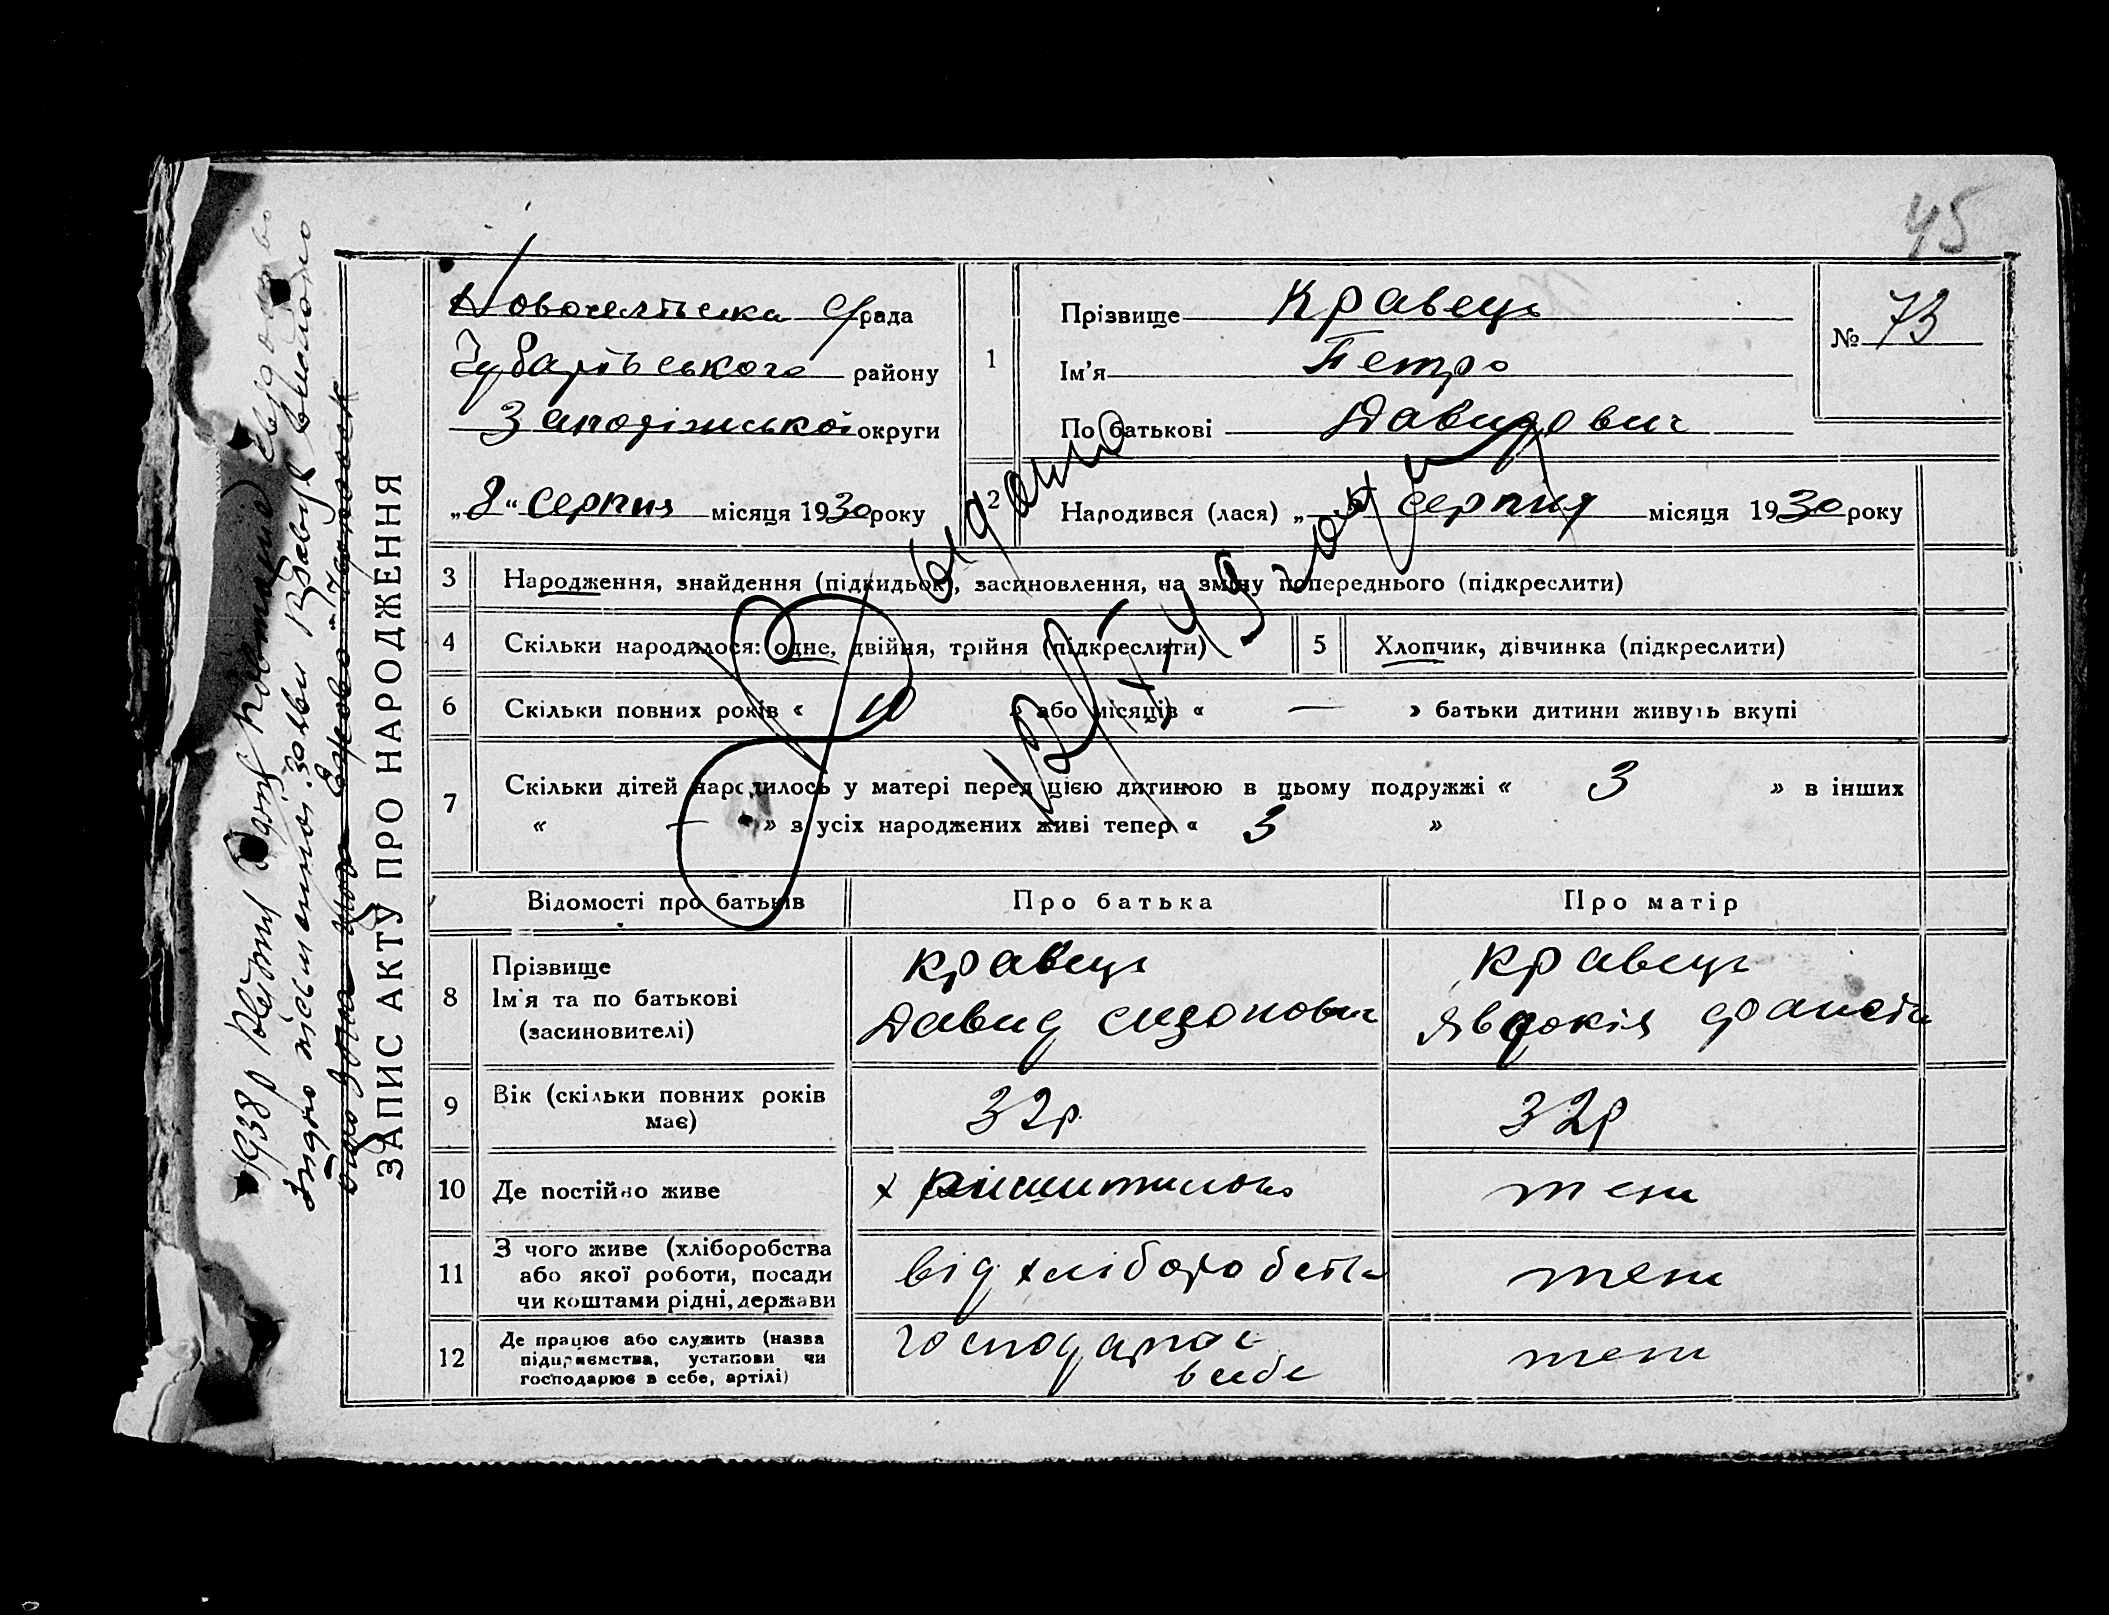 45
Новоселівська с/рада
Чубарівського району
Запоріжської округи
„8“ серпня місяця 1930 року
1
Прізвище Кравець
Ім'я Петро
По батькові Давидович
№ 73
2 Народився (лася) „ серпня місяця 1930 року
3 Народження, знайдення (підкидьок), засиновлення, на зміну попереднього (підкреслити)
4 Скільки народилося: одне, двійня, трійня (підкреслити)
5 Хлопчик, дівчинка (підкреслити)
6 Скільки повних років « » або місяців « — » батьки дитини живуть вкупі
7 Скільки дітей народилось у матері перед цією дитиною в цьому подружжі « 3 » в інших
« — » з усіх народжених живі тепер « 3 »
Відомості про батьків
Про батька
Про матір
8 Прізвище
Ім'я та по батькові
(засиновителі)
Кравець
Давид Сизонович
Кравець
Явдокія
9 Вік (скільки повних років
має)
32р
32р
10 Де постійно живе
х
теж
11 З чого живе (хліборобства
або якої роботи, посади
чи коштами рідні, держави
від хліборобства
теж
12 Де працює або служить (назва
підприємства, установи чи
господарює в себе, артілі)
господарює
в себе
теж
ЗАПИС АКТУ ПРО НАРОДЖЕННЯ
1938 р
Згідно заяви Кравця
видано